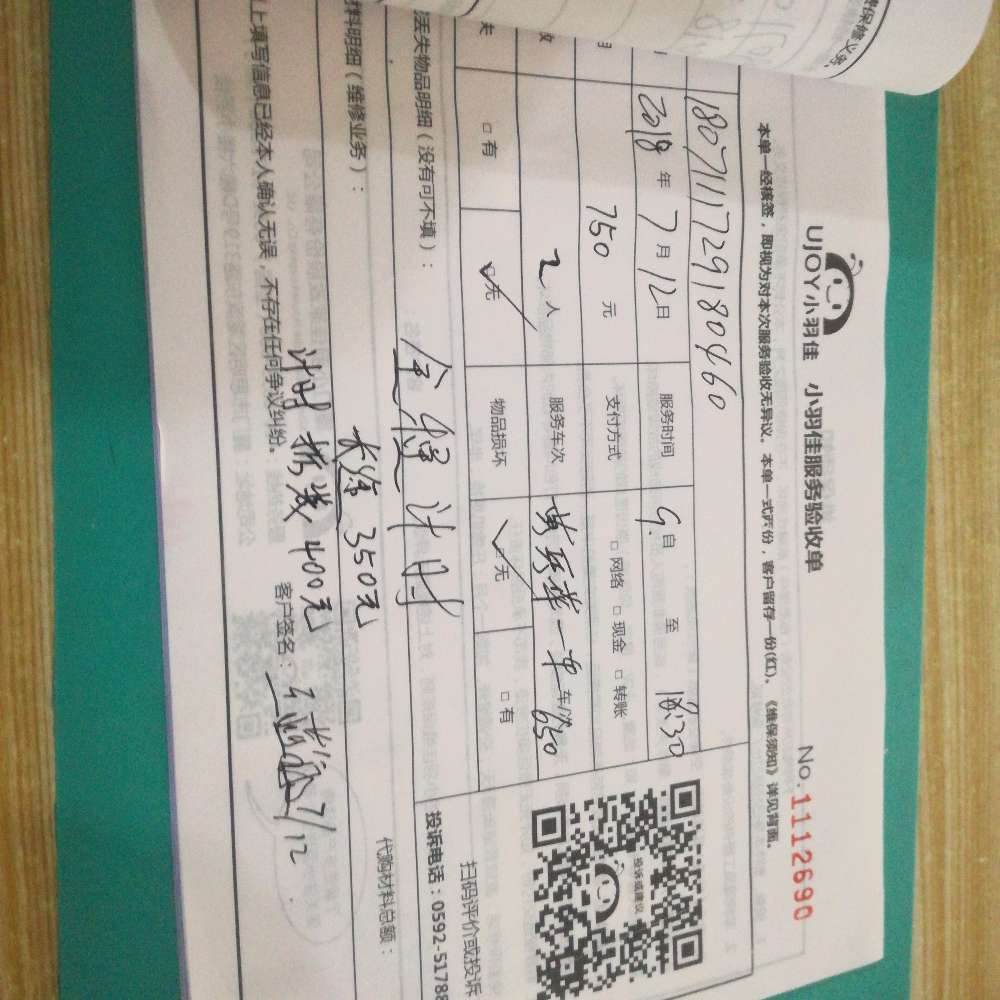 费保修义务。
UJOY小羽佳 小羽佳服务验收单
No.1112690
本单一经核签，即视为对本次服务验收无异议。本单一式两份，客户留存一份(红)。《维保须知》详见背面。
180711172918 0460
2018年7月12日 服务时间 9.自 至 18:30
750 元 支付方式 □网络 □现金 □转账
2人 服务车次 一车 车/次 650
失 □有 □无 物品损坏 □无 □有
丢失物品明细（没有可不填）：
全程计时
扫码评价或投诉
投诉电话：0592-51788
投诉或建议
料明细（维修业务）：
长途 350元
代购材料总额：
计时 拆装 400元
上填写信息已经本人确认无误，不存在任何争议纠纷。
客户签名：
7/12